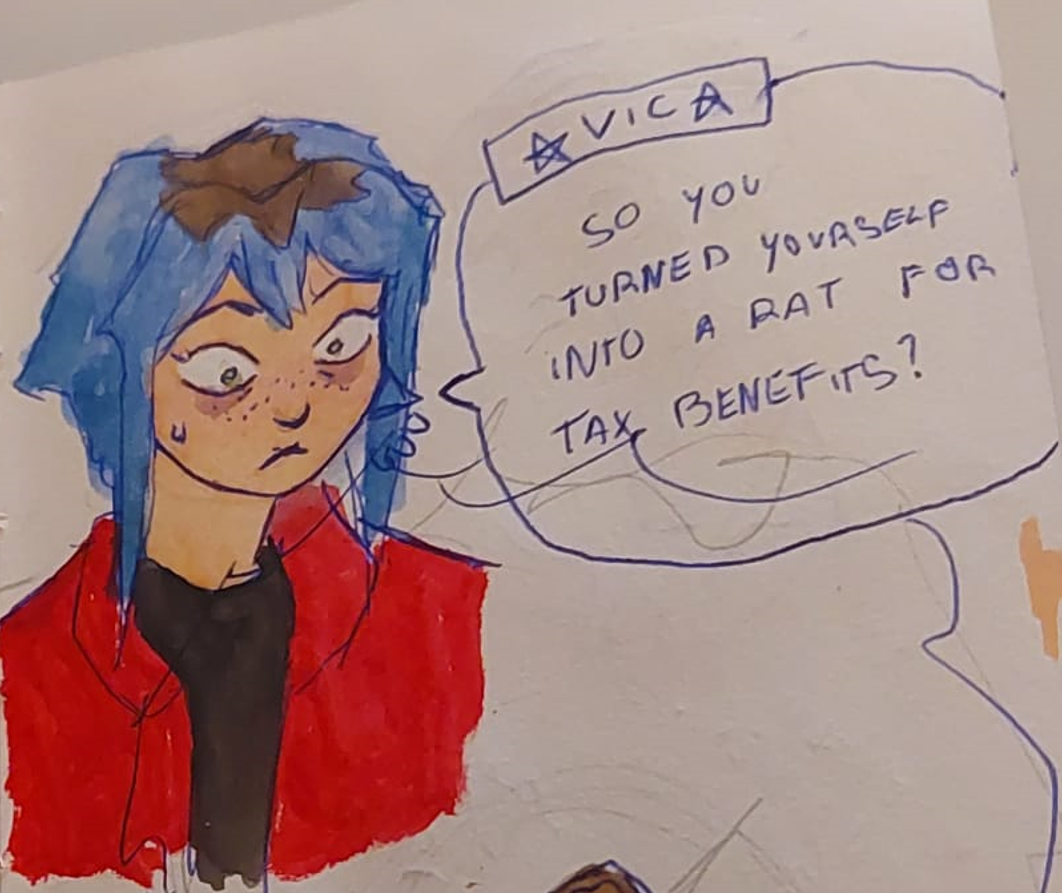 ☆ VIC ☆
SO YOU
TURNED YOURSELF
INTO A RAT FOR
TAX BENEFITS?